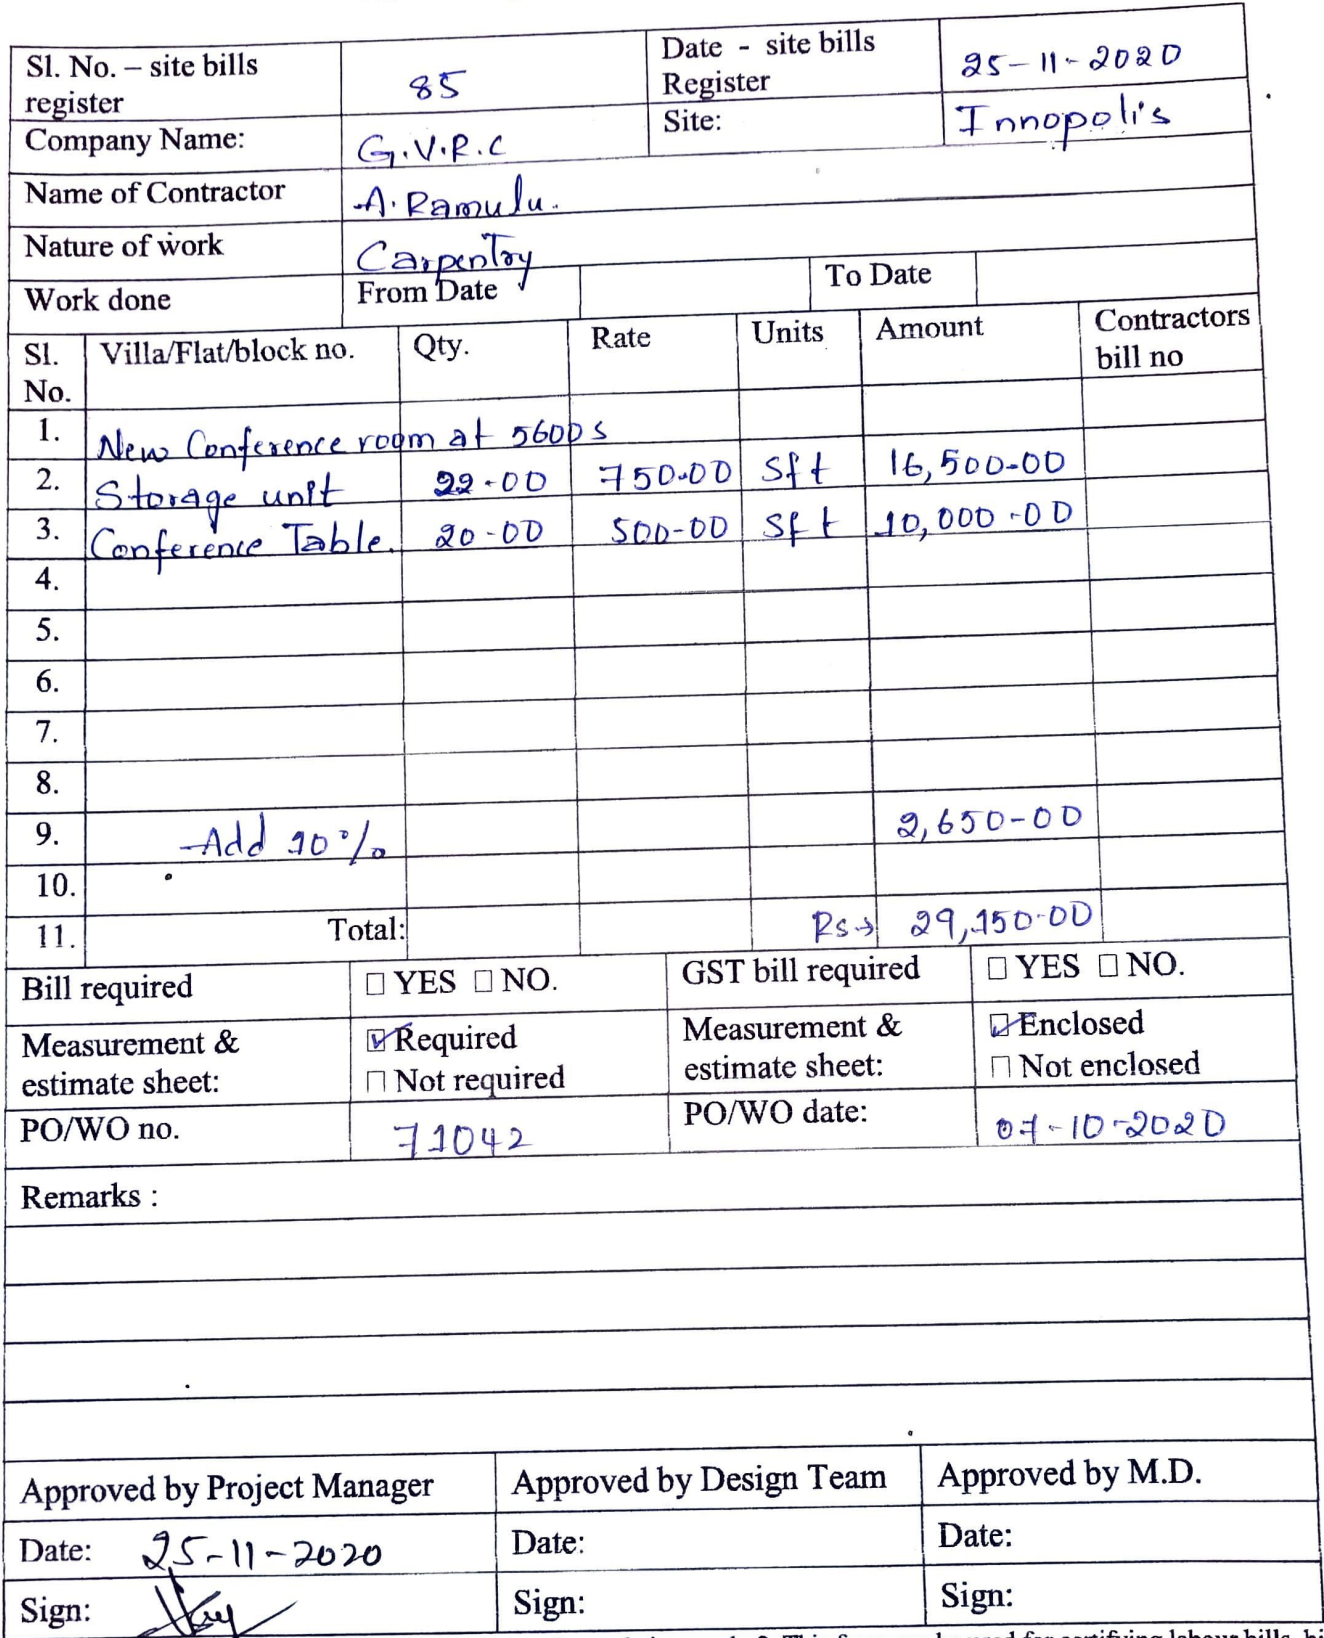 Sl. No. – site bills register 85 Date - site bills Register 25-11-2020
Company Name: G.V.R.C Site: Innopolis
Name of Contractor A. Ramulu.
Nature of work Carpentry
Work done From Date To Date
Sl. No. Villa/Flat/block no. Qty. Rate Units Amount Contractors bill no
1. New Conference room at 5600s
2. Storage unit 22-00 750-00 Sft 16,500-00
3. Conference Table. 20-00 500-00 Sft 10,000-00
4.
5.
6.
7.
8.
9. Add 10% 2,650-00
10.
11. Total: Rs→ 29,150-00
Bill required ☐ YES ☐ NO. GST bill required ☐ YES ☐ NO.
Measurement & estimate sheet: ☑ Required ☐ Not required Measurement & estimate sheet: ☑ Enclosed ☐ Not enclosed
PO/WO no. 71042 PO/WO date: 07-10-2020
Remarks :
Approved by Project Manager Approved by Design Team Approved by M.D.
Date: 25-11-2020 Date: Date:
Sign: Sign: Sign: